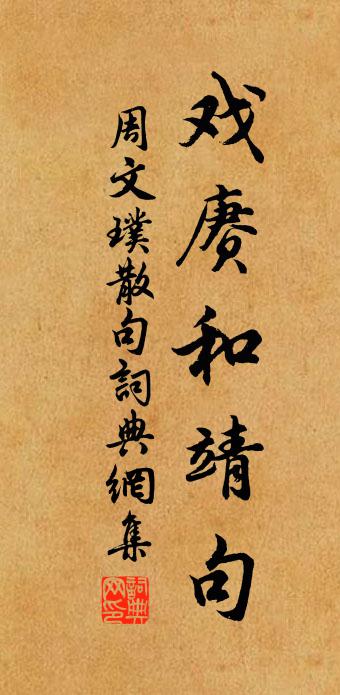 戏赓和靖句
周文璞散句詞典網集
詞典网印